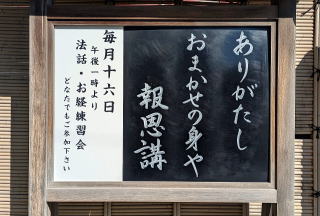 ありがたし
おまかせの身や
報恩講
毎月十六日
午後一時より
法話・お経練習会
どなたでもご参加下さい